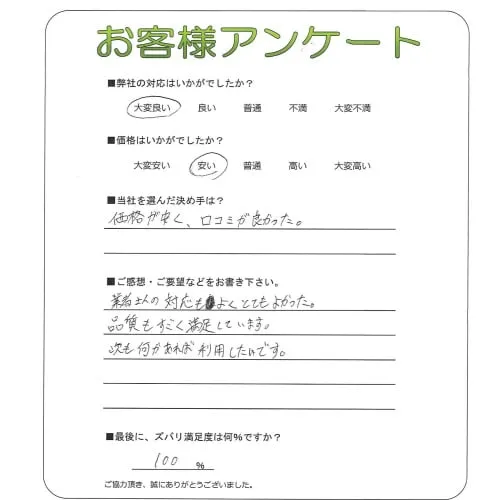 お客様アンケート
■弊社の対応はいかがでしたか?
大変良い 良い 普通 不満 大変不満
■価格はいかがでしたか?
大変安い 安い 普通 高い 大変高い
■当社を選んだ決め手は?
価格が安く、口コミが良かった。
■ご感想・ご要望などをお書き下さい。
業者さんの対応もよくとてもよかった。
品質もすごく満足しています。
次も何かあれば利用したいです。
■最後に、ズバリ満足度は何%ですか?
100 %
ご協力頂き、誠にありがとうございました。